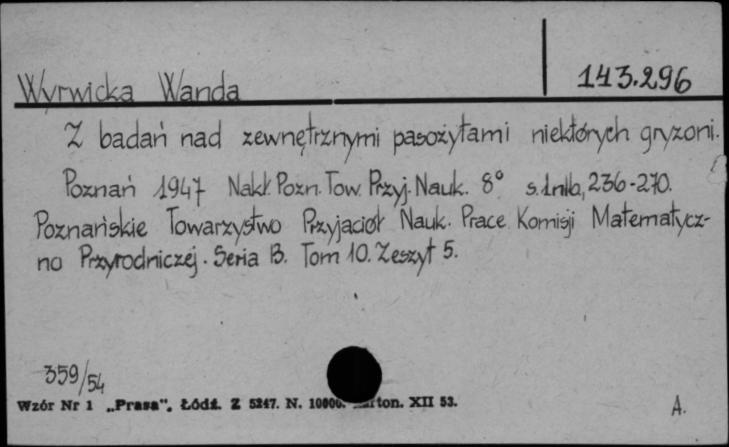 Wyrwicka Wanda 143.296
Z badań nad zewnętrznymi pasożytami niektórych gryzoni.
Poznań 1947 Nakł. Pozn. Tow. Przyj. Nauk. 8° s. 1nlb, 236-270.
Poznańskie Towarzystwo Przyjaciół Nauk. Prace Komisji Matematycz-
no Przyrodniczej. Seria B. Tom 10. Zeszyt 5.
359/54
Wzór Nr 1 „Prasa", Łódź. Z 5247. N. 10000. ton. XII 53.
A.